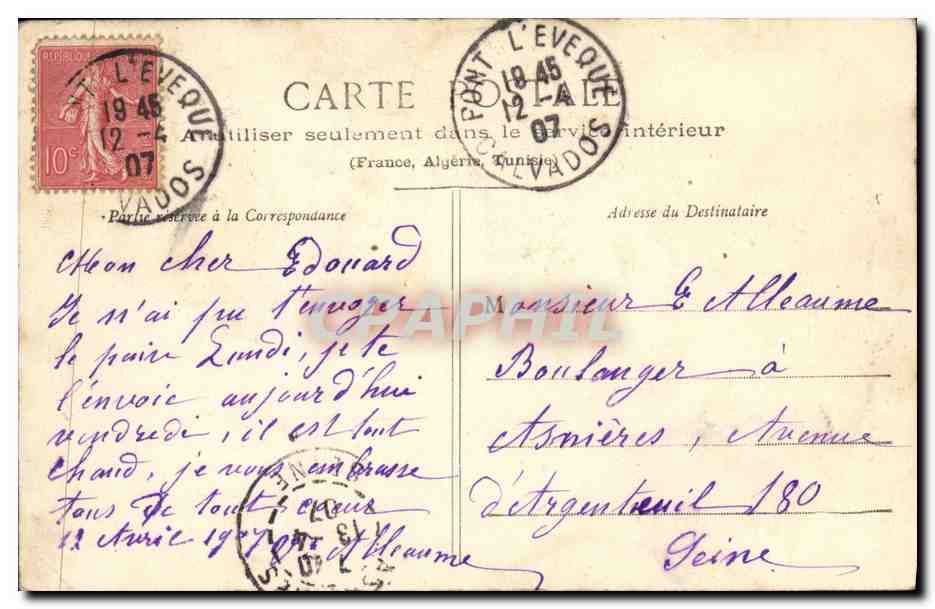 REPUBLIQUE
10c
PONT L'EVEQUE
19 45
12 -4
07
CALVADOS
PONT L'EVEQUE
19 45
12 -4
07
CALVADOS
CARTE POSTALE
A utiliser seulement dans le service intérieur
(France, Algérie, Tunisie)
Partie réservée à la Correspondance
Adresse du Destinataire
Mon cher Edouard
Je n'ai pu t'envoyer
le pain Lundi, je te
l'envoie aujourd'hui
vendredi, il est tout
chaud, je vous embrasse
tous de tout cœur
12 Avril 1907 Alleaume
Monsieur E Alleaume
Boulanger à
Asnières, Avenue
d'Argenteuil 180
Seine
CPAPHIL
SEINE
7 40
13 -4
07